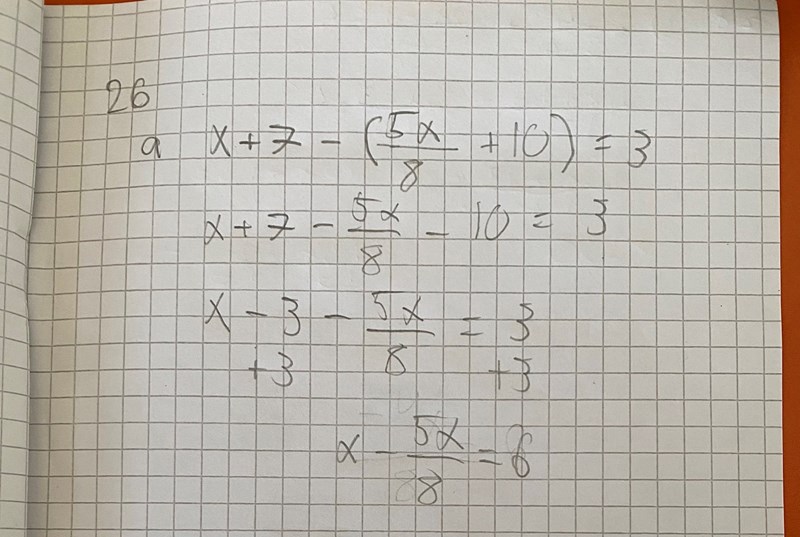 26
a x + 7 - (5x/8 + 10) = 3
x + 7 - 5x/8 - 10 = 3
x - 3 - 5x/8 = 3
+3 +3
x - 5x/8 = 6